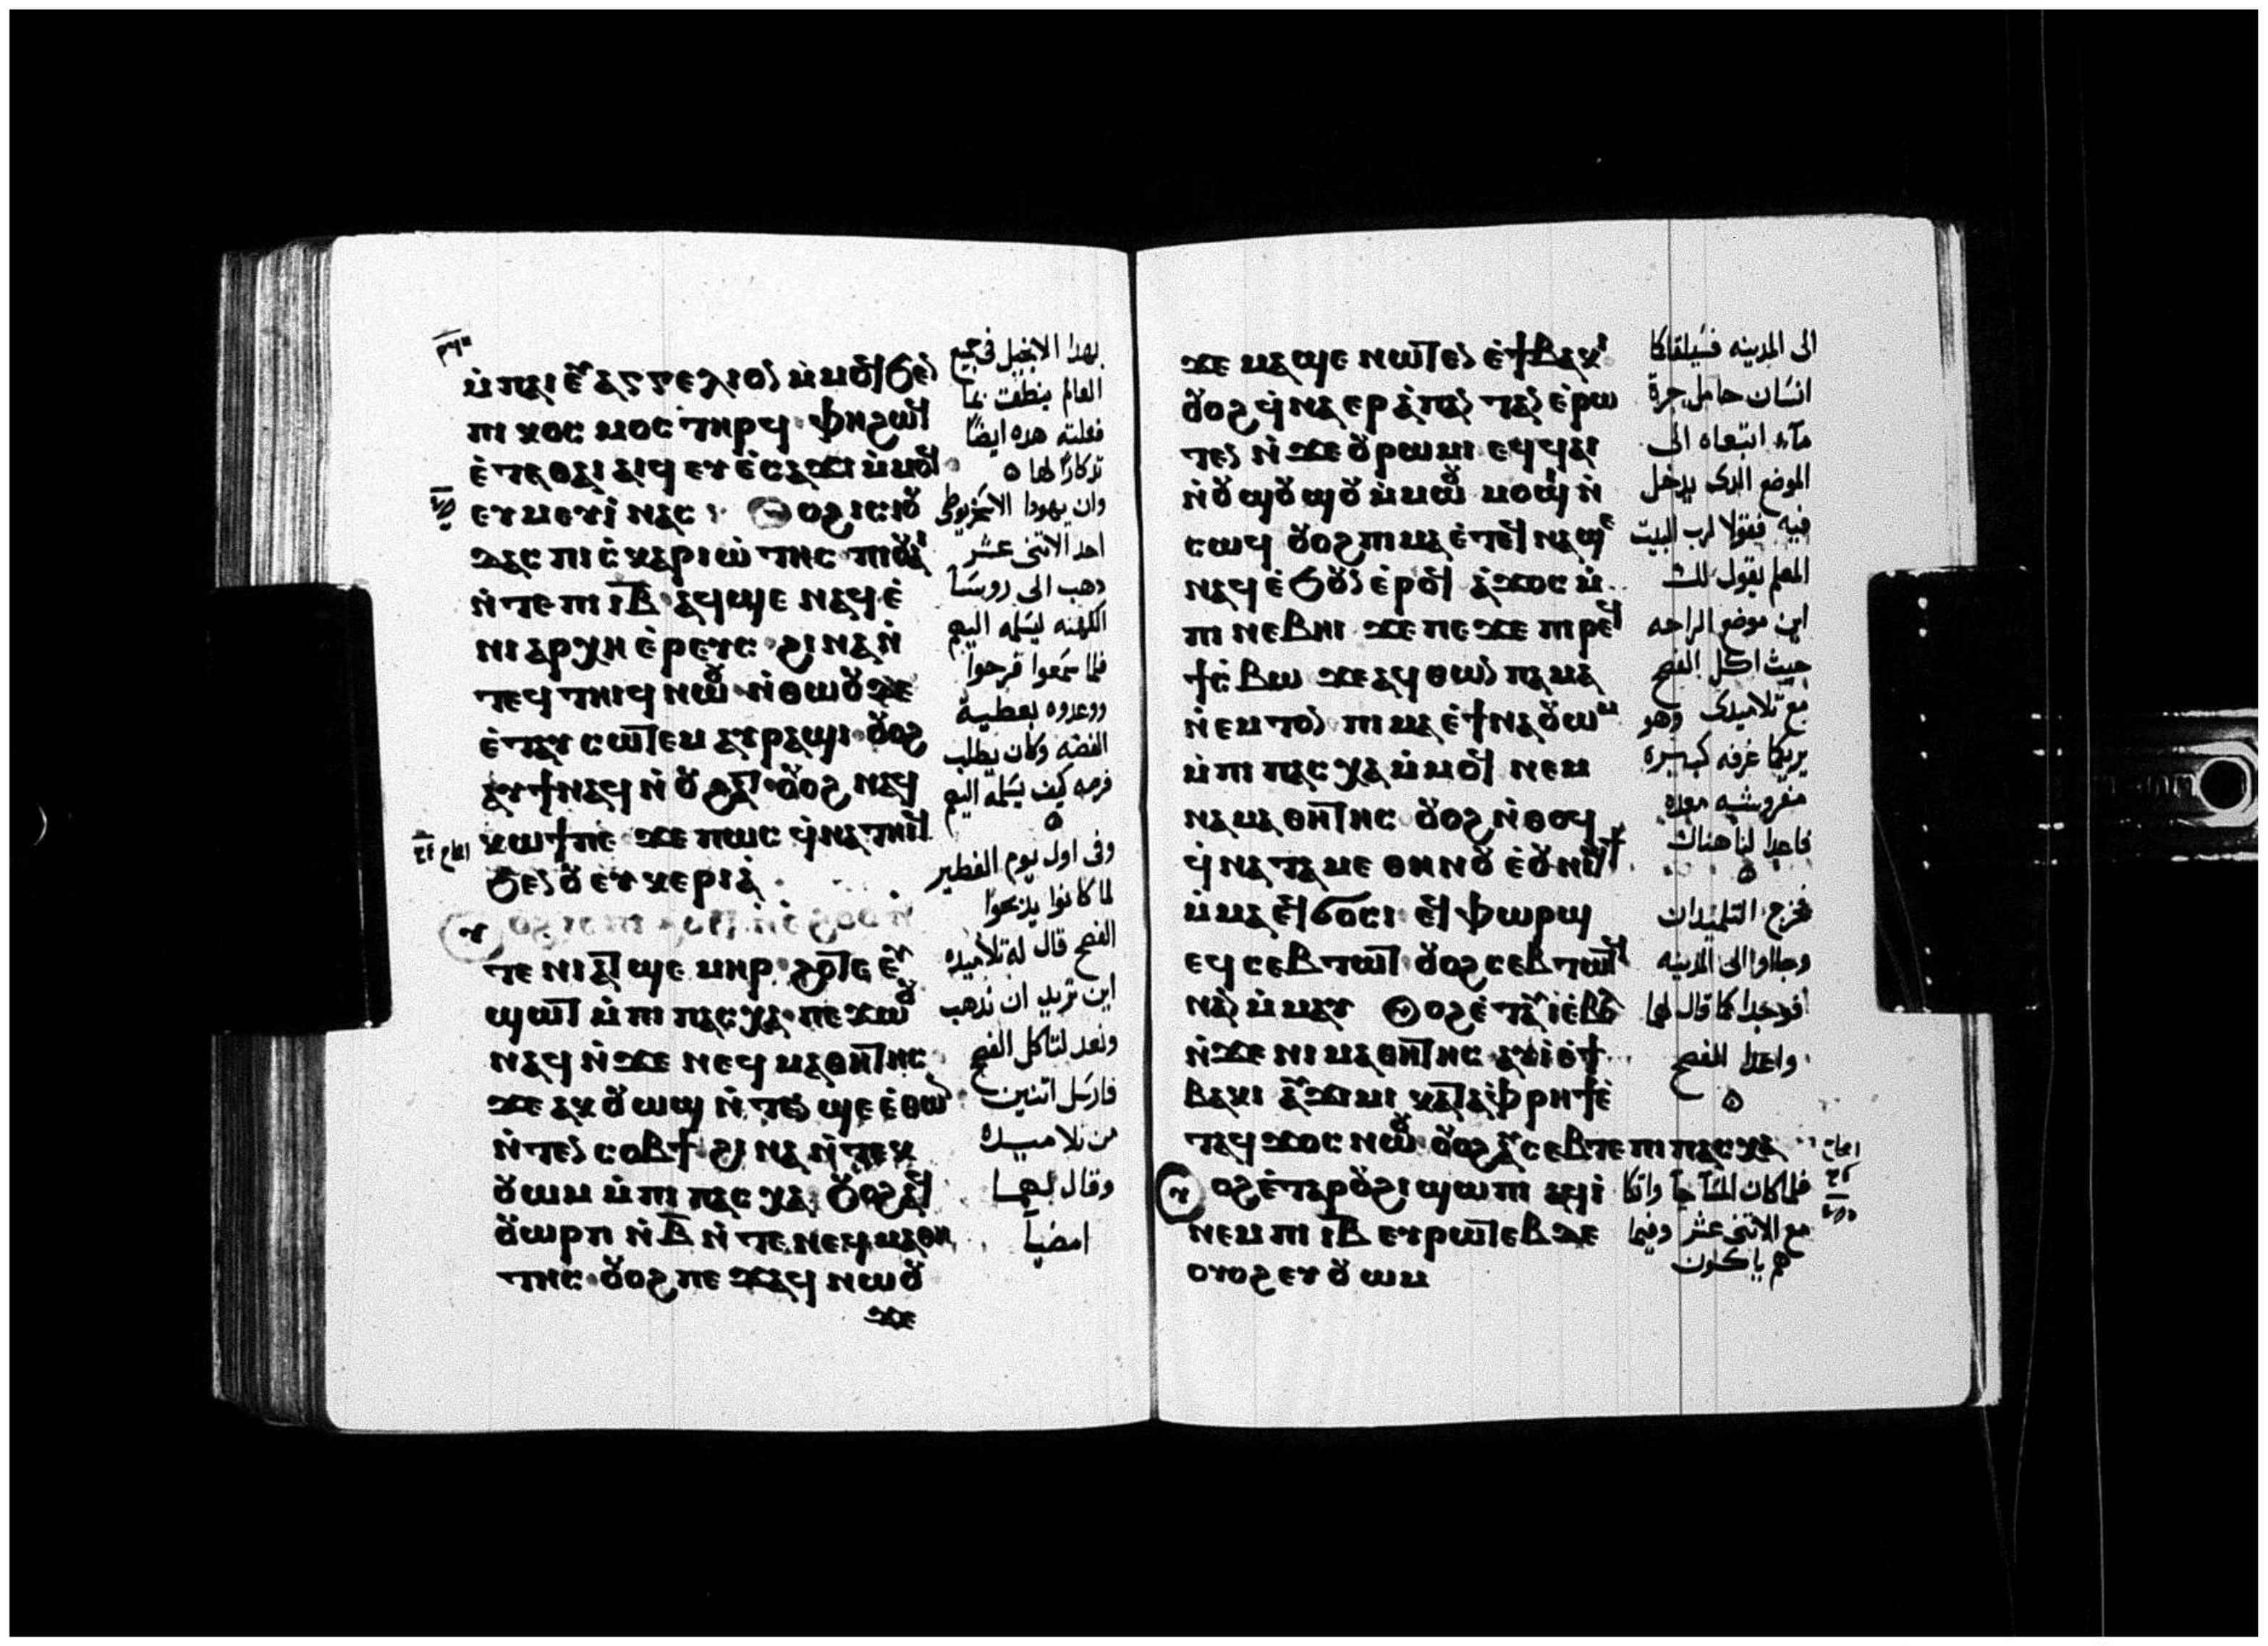 ⲙ̇ⲡⲁⲓ ⲉⲩⲁⲅⲅⲉⲗⲓⲟⲛ ⲙ̇ⲙⲟϥ ϧⲉⲛ
ⲡⲓ ⲕⲟⲥⲙⲟⲥ ⲧⲏⲣϥ ⲫⲏ ϩⲱϥ
ⲉ̇ⲧⲉ ⲑⲁⲓ ⲁⲓϥ ⲉⲩⲉ̇ⲥⲁϫⲓ ⲙ̇ⲙⲟϥ
ⲉⲩⲙⲉⲩⲓ̇ ⲛⲁⲥ ⲟⲩⲟϩ ⲓⲥ ⲓⲟⲩ
ⲇⲁⲥ ⲡⲓ ⲥ̇ⲕⲁⲣⲓⲱ̇ⲧⲏⲥ ⲡⲓⲟⲩⲁⲓ
ⲛ̇ⲧⲉ ⲡⲓ ⲓ̅ⲃ̅ ⲁϥϣⲉ ⲛⲁϥ ⲉ̇
ⲛⲓ ⲁⲣⲭⲏ ⲉ̇ⲣⲉⲩⲥ ϩⲓⲛⲁ ⲛ̇
ⲧⲉϥ ⲧⲏⲓϥ ⲛⲱⲟⲩ ⲛ̇ⲑⲱⲟⲩ ⲇⲉ
ⲉ̇ⲧⲁⲩ ⲥⲱⲧⲉⲙ ⲁⲩⲣⲁϣⲓ ⲟⲩⲟϩ
ⲁⲩϯ ⲛⲁϥ ⲛ̇ ⲟⲩϩⲁⲧ ⲟⲩⲟϩ ⲛⲁϥ
ⲕⲱϯ ⲡⲉ ϫⲉ ⲡⲱⲥ ϥ̇ⲛⲁⲧⲏⲓϥ
ϧⲉⲛ ⲟⲩ ⲉⲩⲕⲉⲣⲓⲁ̇
ⲧⲉ ⲛⲓⲁⲧϣⲉⲙⲏⲣ ϩⲟⲧⲉ ⲉⲩ
ϣⲱⲧ ⲙ̇ⲡⲓ ⲡⲁⲥⲭⲁ ⲡⲉϫⲱⲟⲩ
ⲛⲁϥ ⲛ̇ϫⲉ ⲛⲉϥ ⲙⲁⲑⲏⲧⲏⲥ
ϫⲉ ⲁⲕ ⲟⲩⲱϣ ⲛ̇ⲧⲉⲛ ϣⲉ ⲉ̇ⲑⲱⲛ
ⲛ̇ⲧⲉⲛ ⲥⲟⲃϯ ϩⲓⲛⲁ ⲛ̇ⲧⲉⲕ
ⲟⲩⲱⲙ ⲙ̇ⲡⲓ ⲡⲁⲥⲭⲁ ⲟⲩⲟϩ ⲁϥ
ⲟⲩⲱⲣⲡ ⲛ̇ⲃ̅ ⲛ̇ⲧⲉ ⲛⲉϥ ⲙⲁⲑⲏ
ⲧⲏⲥ ⲟⲩⲟϩ ⲡⲉϫⲁϥ ⲛⲱⲟⲩ
ϫⲉ
بهدا الانجيل فى جميع
العالم ينطق بما
فعلته هده ايضًا
تدكارًا لها
وان يهودا الاسخريوطى
احد الاثنى عشر
دهب الى روسآ
الكهنه ليسلمه اليهم
فلما سمعوا فرحوا
ووعدوه بعطية
الفضه وكان يطلب
فرصه كيف يسلمه اليهم
وفى اول يوم الفطير
لما كانوا يدبحوا
الفصح قال له تلاميده
اين تريد ان ندهب
ونعد لتاكل الفصح
فارسل اتنين
من تلاميده
وقال لهما
امضيآ
ϫⲉ ⲙⲁϣⲉ ⲛⲱⲧⲉⲛ ⲉ̇ϯⲃⲁⲕⲓ
ⲟⲩⲟϩ ϥ̇ⲛⲁ ⲉⲣ ⲁ̇ⲡⲁⲛ ⲧⲁⲛ ⲉ̇ⲣⲱ
ⲧⲉⲛ ⲛ̇ϫⲉ ⲟⲩⲣⲱⲙⲓ ⲉϥϥⲁⲓ
ⲛ̇ⲟⲩϣⲟϣⲟⲩ ⲙ̇ⲙⲱⲟⲩ ⲙⲟϣⲓ ⲛ̇
ⲥⲱϥ ⲟⲩⲟϩ ⲡⲓⲙⲁ ⲉ̇ⲧⲉϥⲛⲁϣⲉ
ⲛⲁϥ ⲉ̇ϧⲟⲩⲛ ⲉ̇ⲣⲟϥ ⲁ̇ϫⲟⲥ ⲙ̇
ⲡⲓ ⲛⲉⲃⲏⲓ ϫⲉ ⲡⲉϫⲉ ⲡⲓⲣⲉϥ
ϯⲥ̇ⲃⲱ ϫⲉ ⲁϥⲑⲱⲛ ⲡⲁⲙⲁ
ⲛ̇ⲉⲙⲧⲟⲛ ⲡⲓⲙⲁ ⲉ̇ϯⲛⲁⲟⲩⲱⲙ
ⲙ̇ⲡⲓ ⲡⲁⲥⲭⲁ ⲙ̇ⲙⲟϥ ⲛⲉⲙ
ⲛⲁⲙⲁⲑⲏⲧⲏⲥ ⲟⲩⲟϩ ⲛ̇ⲑⲟϥ
ϥ̇ⲛⲁⲧⲁⲙⲉ ⲑⲏⲛⲟⲩ ⲉ̇ⲟⲩⲛⲓϣϯ
ⲙ̇ⲙⲁ ⲉϥϭⲟⲥⲓ ⲉϥⲫⲱⲣϣ
ⲉϥⲥⲉⲃⲧⲱⲧ ⲟⲩⲟϩ ⲥⲉⲃⲧⲱⲧϥ
ⲛⲁⲛ ⲙ̇ⲙⲁⲩ ⲟⲩⲟϩ ⲉ̇ⲧⲁⲩⲓ̇ ⲉ̇ⲃⲟⲗ
ⲛ̇ϫⲉ ⲛⲓⲙⲁⲑⲏⲧⲏⲥ ⲁⲩⲓ̇ ⲉ̇ϯ
ⲃⲁⲕⲓ ⲁⲩϫⲓⲙⲓ ⲕⲁⲧⲁ ⲫ̇ⲣⲏϯ ⲉ̇
ⲧⲁϥϫⲟⲥ ⲛⲱⲟⲩ ⲟⲩⲟϩ ⲁⲩⲥⲉⲃⲧⲉ ⲡⲓ ⲡⲁⲥⲭⲁ
ⲟⲩⲟϩ ⲉ̇ⲧⲁ ⲣⲟⲩϩⲓ ϣⲱⲡⲓ ⲁϥⲓ̇
ⲛⲉⲙ ⲡⲓ ⲓ̅ⲃ̅ ⲉⲩⲣⲱⲧⲉⲃ ⲇⲉ
ⲟⲩⲟϩ ⲉⲩⲟⲩⲱⲙ
الى المدينه فسيلقاكما
انسان حامل جرة
مآء اتبعاه الى
الموضع الدى يدخل
فيه فقولا لرب البيت
المعلم يقول لك
اين موضع الراحه
حيث اكل الفصح
مع تلاميدى وهو
يريكما غرفه كبيره
مفروشه معده
فاعدا لنا هناك
فخرج التلميدان
وجاؤا الى المدينه
فوجدا كما قال لهما
واعدا الفصح
فلما كان المسآ جآ واتكا
مع الاثنى عشر وفيما
هم ياكلون